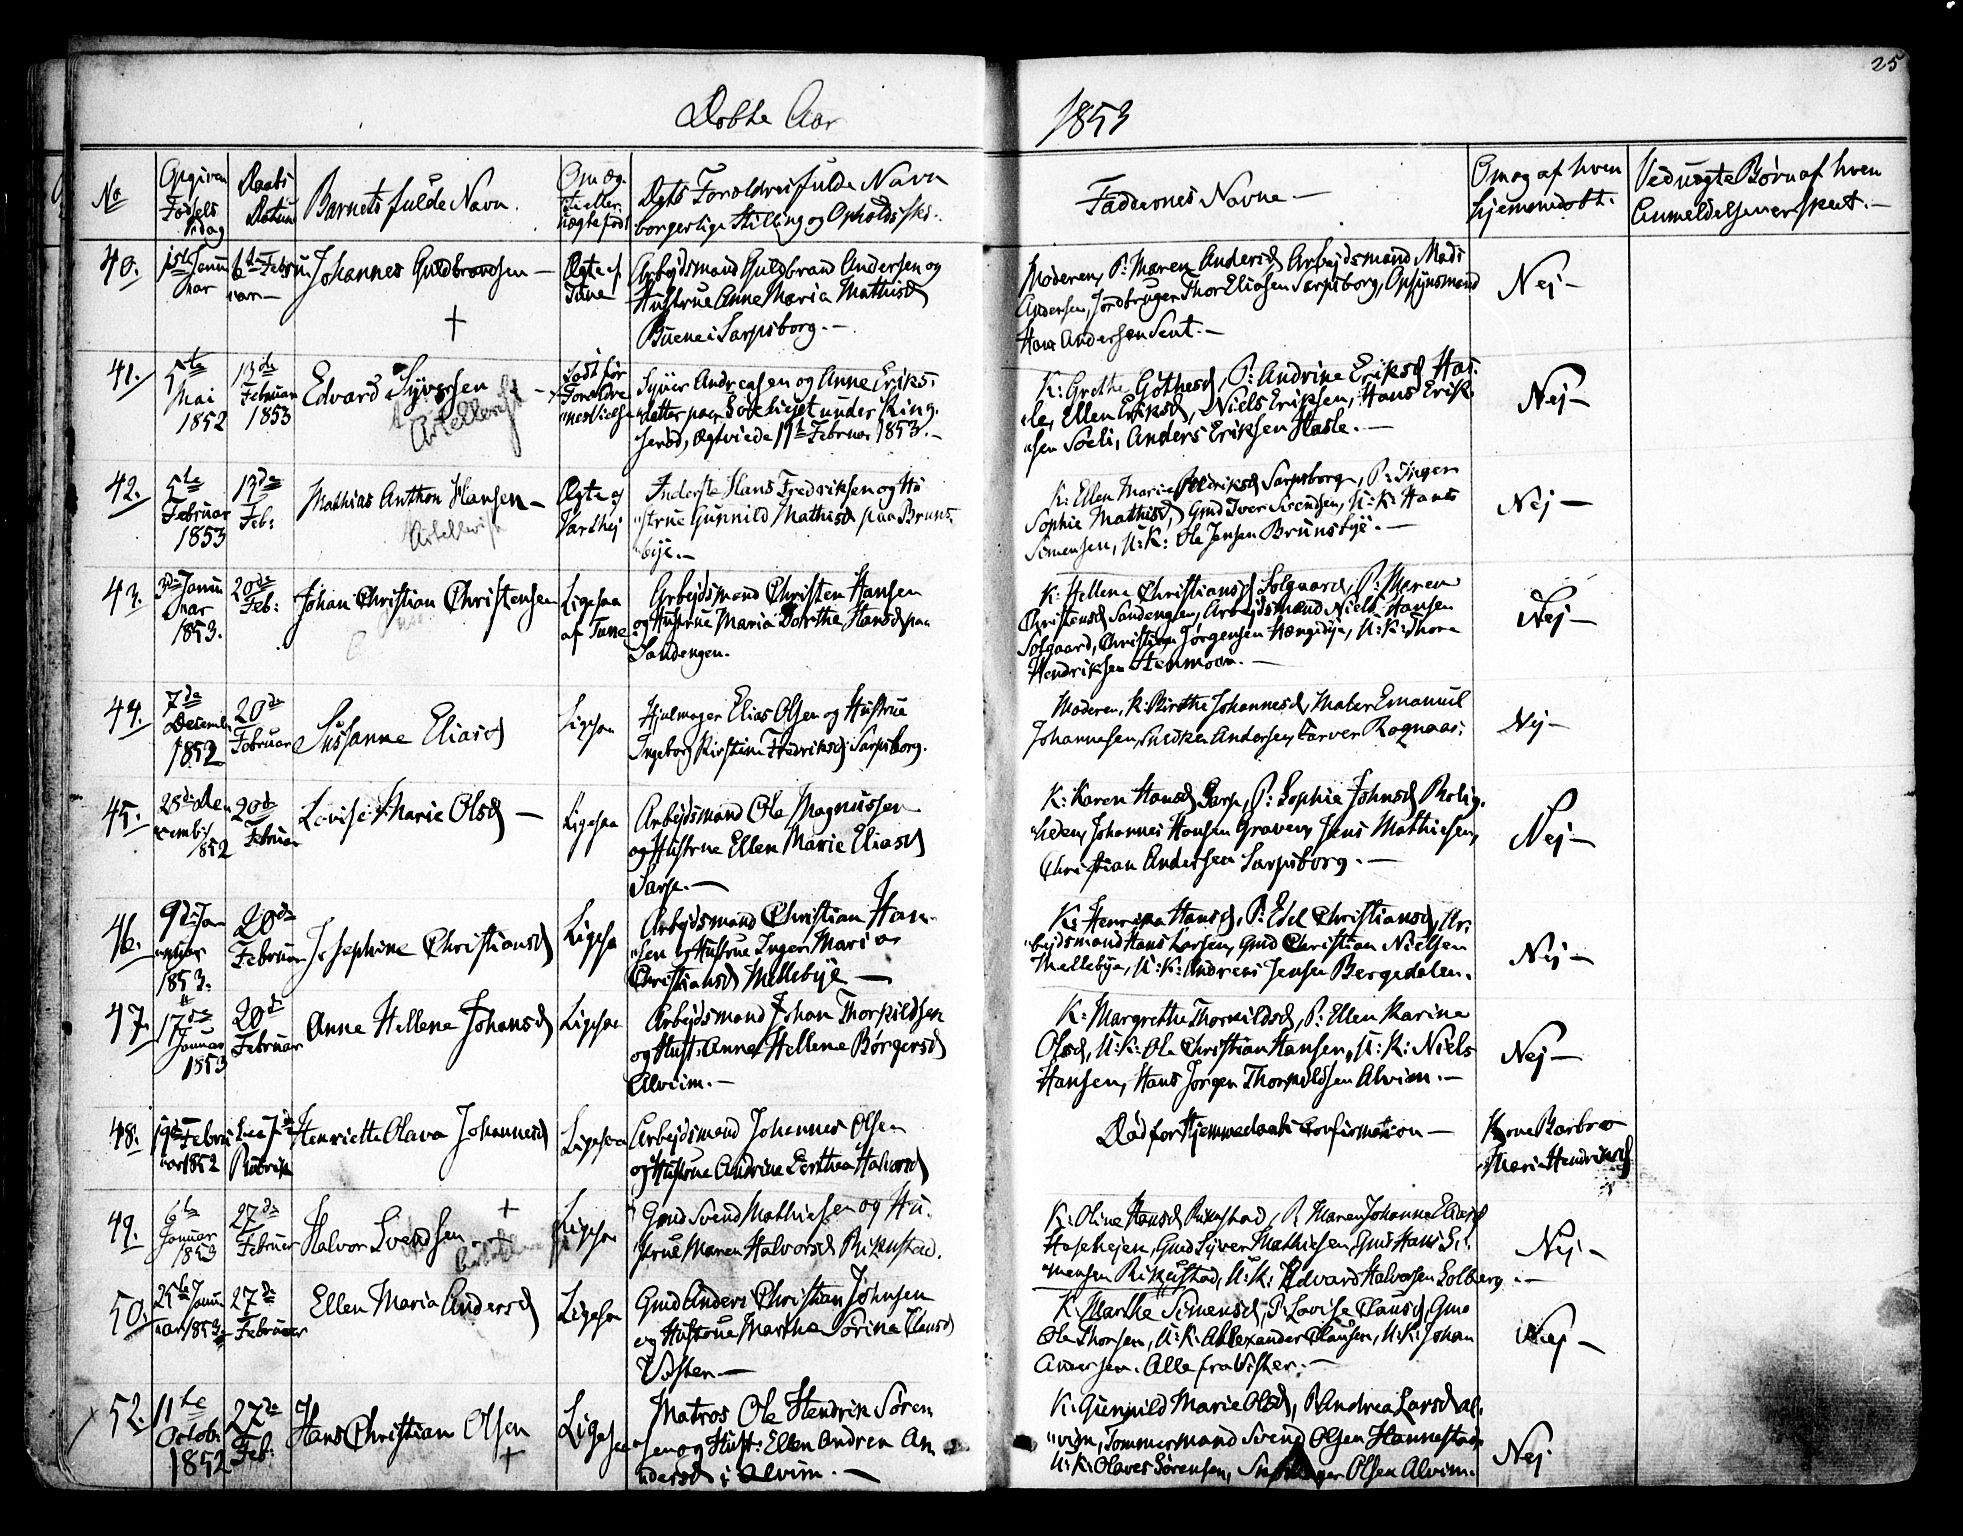 25
Døbte Aar 1853
No
Opgiven Fødselsdag
Daabs Datum
Barnets fulde Navn.
Om ægte eller uægte født
Dets Forældres fulde Navn
borgerlige Stilling og Opholdssted.
Faddernes Navne —
Om og af hvem
hjemmedøbt.
Ved uægte Børn af hvem
Anmeldelsen er skeet. —
40.
1ste Januar
6te Februar —
Johannes Guldbrandsen —
+
Ægte af Tune
Arbejdsmand Guldbrand Andersen og
Hustrue Anne Maria Mathisd
Buene i Sarpsborg. —
Moderen, P: Maren Andersd, Arbejdsmand Mads
Andersen, Jordbruger Thor Eliasen Sarpsborg, Opsynsmand
Hans Andersen Sent. —
Nej —
41.
5te Mai 1852
13de Februar 1853
Edvard Syversen —
Født før Forældrenes
Syver Andreasen og Anne Eriks-
datter paa under Ring-
serød, ægtviede 11te Februar 1853. —
K: Grethe Gothesd, P: Andrine Eriksd Has-
le, Ellen Eriksd, Niels Eriksen, Hans Erik-
sen Soeli, Anders Eriksen Hasle. —
Nej —
42.
5te Februar 1853
13de Feb:
Mathias Anthon Hansen —
Ægte og
Inderste Hans Fredriksen og Hu-
strue Gunnild Mathisd paa Bruns-
bye. —
K: Ellen Marie Sarpsborg, P: Inger
Sophie Mathisd, Gmd Iver Svendsen, U: K: Hans
Simensen, U: K: Ole Jensen Brunsbye. —
Nej —
43.
3de Januar 1853.
20de Feb:
Johan Christian Christensen
Ligesaa af Tune
Arbejdsmand Christen Hansen
og Hustrue Maria Dorthe Hansd paa
Sandengen.
K: Hellene Christiansd Solgaard, P: Maren
Christensd Sandengen, Arbejdsmand Niels Hansen
Solgaard, Christian Jørgensen Hængebye, U: K: Thore
Hendriksen Henmoen. —
Nej —
44.
7de Decemb. 1852
20de Februar
Susanne Eliasd
Ligesaa
Hjulmager Elias Olsen og Hustrue
Ingeborg Kirstine Fredriksd Sarpsborg.
Moderen, K: Birthe Johannesd, Maler Emanuel
Johannesen, Snedker Andersen, Farver Rognaas.
Nej —
45.
28de Decemb: 1852
20de Februar
Lovise Marie Olsd —
Ligesaa
Arbejdsmand Ole Magnussen
og Hustrue Ellen Marie Eliasd
Sarpe. —
K: Karen Hansd Sarp, P: Sophie Johnsd Rolig-
heden, Johannes Hansen Graven, Jens Mathiesen,
Christian Andersen Sarpsborg. —
Nej —
46.
9de Januar 1853.
20de Februar
Josephine Christiansd
Ligesaa
Arbejdsmand Christian Han-
sen og Hustrue Inger Maria
Christiansd Mellebye —
K: Hansd, P: Edel Christiansd, Ar-
bejdsmand Hans Larsen, Gmd Christian Nielsen
Mellebye, U: K: Andreas Jensen Bergedalen.
Nej —
47.
17de Januar 1853
20de Februar
Anne Hellene Johansd
Ligesaa
Arbejdsmand Johan Thorkildsen
og Hust: Anne Hellene Børgersd
Alvim. —
K: Margrethe Thorkildsd, P: Ellen Karine
Olsd, U: K: Ole Christian Hansen, U: K: Niels
Hansen, Hans Jørgen Thorkildsen Alvim. —
Nej —
48.
19de Februar 1852
Rubrik
Henriette Olava Johannesd
Ligesaa
Arbejdsmand Johannes Olsen
og Hustrue Andrine Berthea Halvorsd
Død før Hjemmedaabs Confirmation —
Kone Barbro
Maria Hendriksd
49.
6te Januar 1853
27de Februar
Halvor Svendsen
+
Ligesaa
Gmd Svend Mathiesen og Hu-
strue Maren Halvorsd Rikustad.
K: Oline Hansd Rikustad, P: Maren Johanne Eliasd
Hasehejen, Gmd Syver Mathiesen, Gmd Hans Si-
mensen Rikustad, U: K: Edvard Halvorsen Solberg. —
Nej —
50.
25te Januar 1853.
27de Februar
Ellen Maria Andersd
Ligesaa
Gmd Anders Christian Johnsen
og Hustrue Marthe Sørine Clausd
Visten —
K: Marthe Simensd, P: Lovise Clausd, Gmd
Ole Thorsen, U: K: Allexander Clausen, U: K: Johan
Andersen. Alle fra Visten. —
Nej —
52.
11te Octob: 1852
27de Feb:
Hans Christian Olsen
+
Ligesaa
Matros Ole Hendrik Søren-
sen og Hust: Ellen Andrea An-
dersd i Alvim. —
K: Gunnild Marie Olsd, P: Andrea Larsd Al-
vim, Tømmermand Svend Olsen Hannestad,
U: K: Olaves Sørensen, Olsen Alvim.
Nej